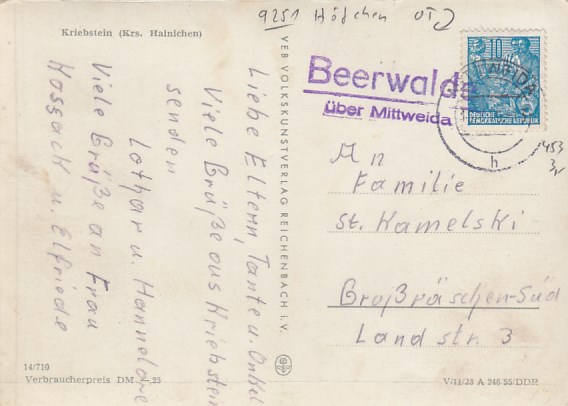 9251 Höfchen OT
Kriebstein (Krs. Hainichen)
Liebe Eltern, Tante u. Onkel
Viele Grüße aus Kriebstein
senden
Lothar u. Hannelore
Viele Grüße an Frau
Kossack u. Elfriede
14/710
Verbraucherpreis DM -,25
VEB VOLKSKUNSTVERLAG REICHENBACH i. V.
Beerwalde
über Mittweida
10
DEUTSCHE
DEMOKRATISCHE REPUBLIK
MITTWEIDA
h
453
An
Familie
St. Kamelski
Großräschen-Süd
Landstr. 3
V/11/28 A 246 55/DDR